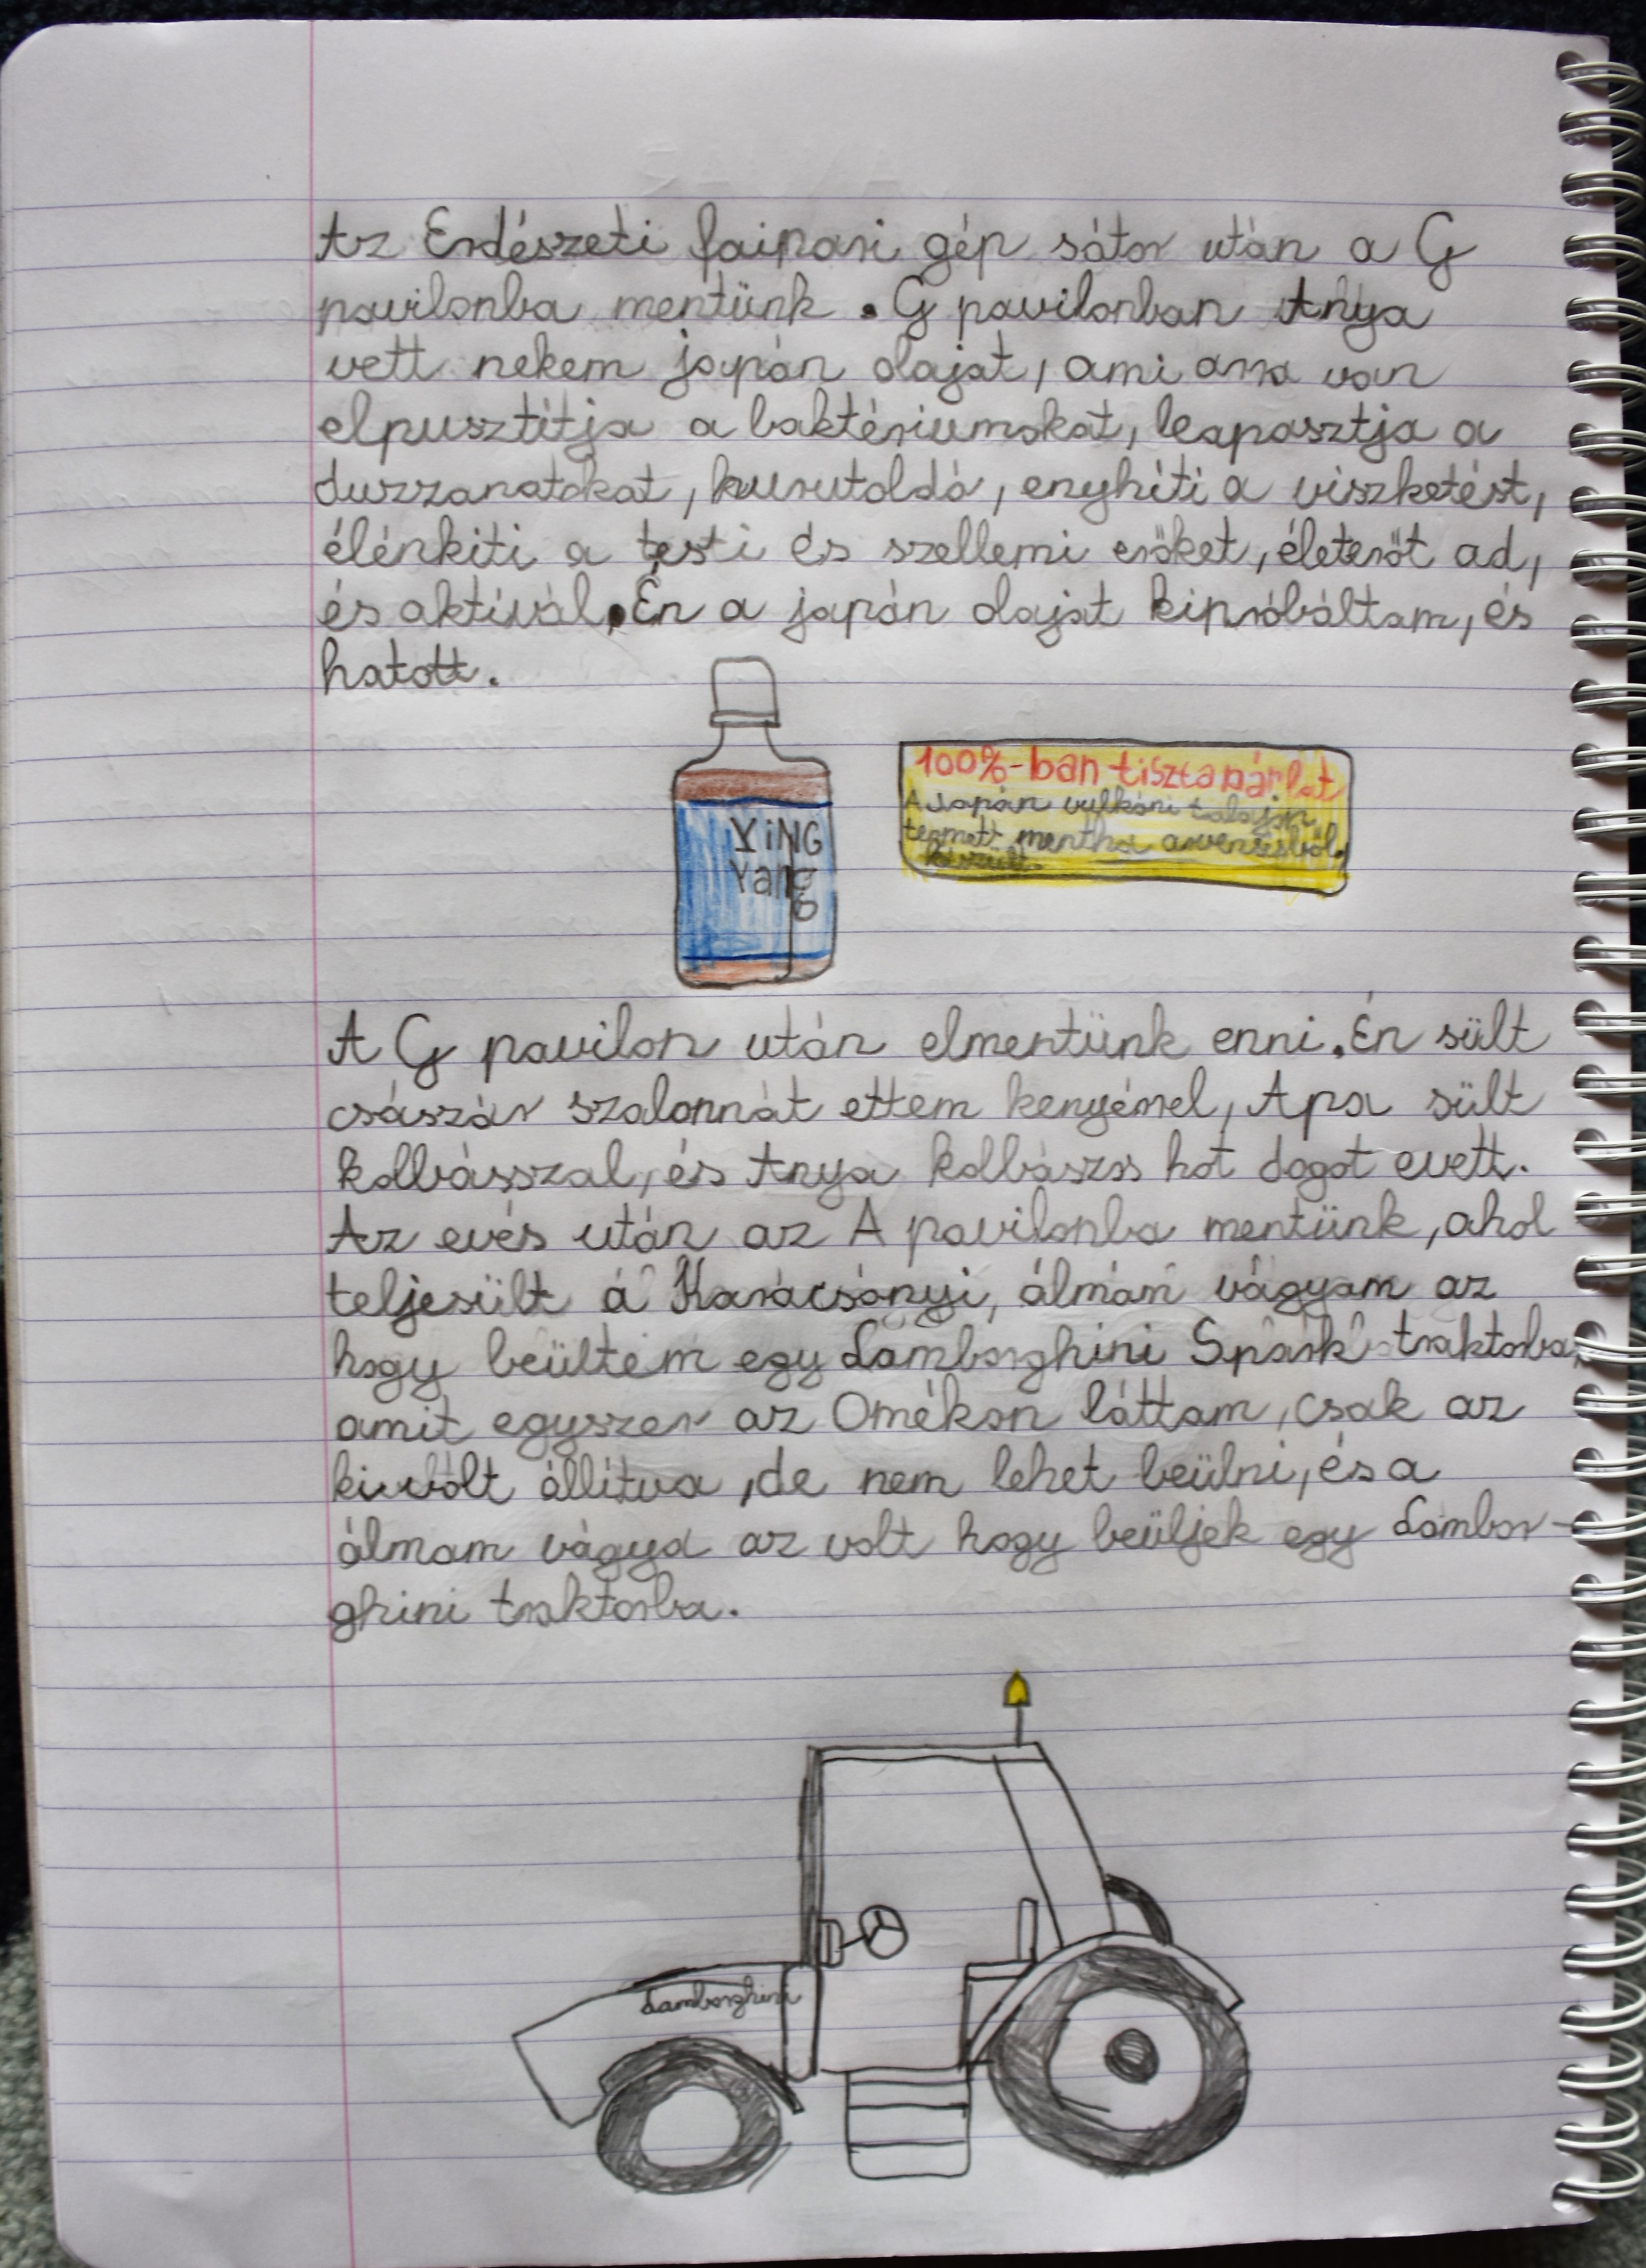 Az Erdészeti faipari gép sátor után a G
pavilonba mentünk. G pavilonban Anya
vett nekem japán olajat, ami arra van
elpusztítja a baktériumokat, leapasztja a
duzzanatokat, kurutoldó, enyhiti a viszketést,
élénkiti a testi és szellemi erőket, életerőt ad,
és aktivál. Én a japán olajat kipróbáltam, és
hatott.
YiNG
Yang
100%-ban tiszta párlat
A Japán vulkáni talajon
termett mentha arvensisből
készült.
A G pavilon után elmentünk enni. Én sült
császár szalonnát ettem kenyérrel, Apa sült
kolbásszal, és Anya kolbászos hot dogot evett.
Az evés után az A pavilonba mentünk, ahol
teljesült a Karácsonyi, álmom vágyam az
hogy beültem egy Lamborghini Spark traktorba,
amit egyszer az Omékon láttam, csak az
ki volt állítva, de nem lehet beülni, és a
álmam vágya az volt hogy beüljek egy Lambor-
ghini traktorba.
Lamborghini